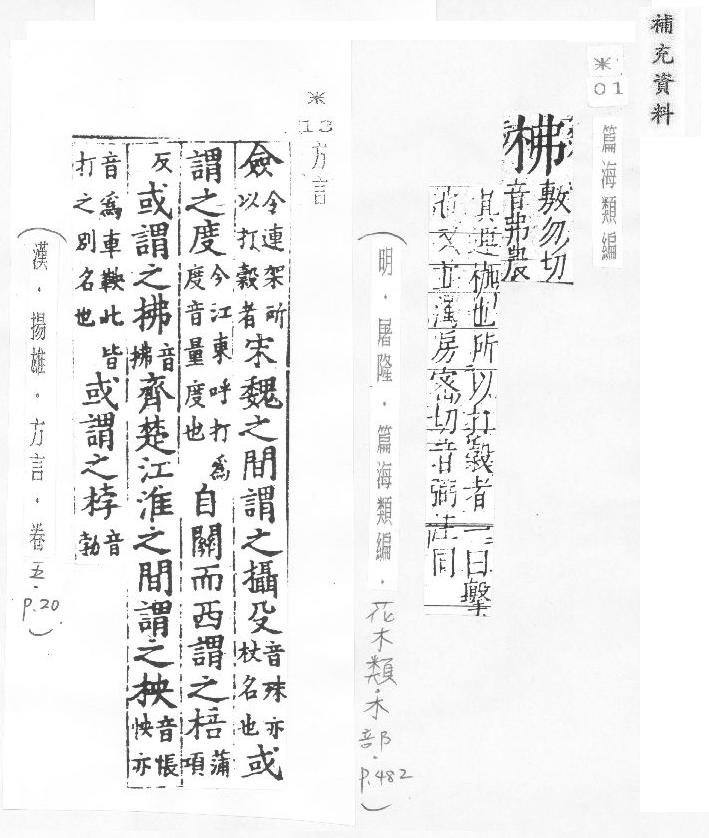 補充資料
※
01
篇海類編
柫敷勿切音弗農
具連枷也所以打穀者一曰擊
也又 房密切音弼注同
(明・屠隆・篇海類編・花木類・木部・P.482)
※
13
方言
僉今連架所以打穀者宋魏之間謂之攝殳音殊亦杖名也或
謂之度今江東呼打為度音量度也自關而西謂之棓蒲項
反或謂之柫音拂齊楚江淮之間謂之柍音悵怏亦
音為車鞅此皆打之別名也或謂之桲音勃
(漢・揚雄・方言・卷五・P.20)